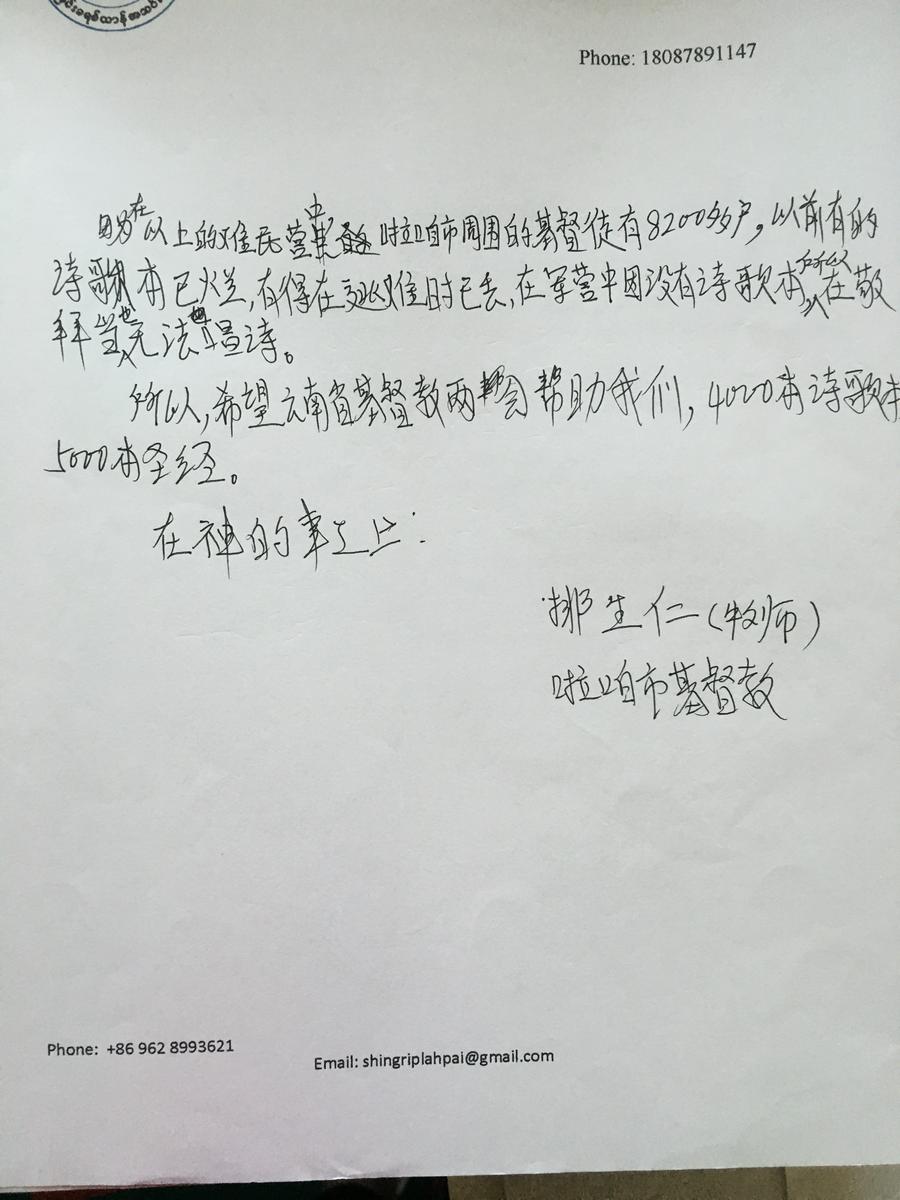 Phone: 18087891147
在以上的难民营中 啦咱市周围的基督徒有8200多户，以前有的
诗歌本已烂，有得在逃难时已丢，在军营中因没有诗歌本，所以在敬
拜当也无法唱诗。
所以，希望云南省基督教两会帮助我们，4000本诗歌本
5000本圣经。
在神的事之上：
排生仁（牧师）
啦咱市基督教
Phone: +86 962 8993621
Email: shingriplahpai@gmail.com